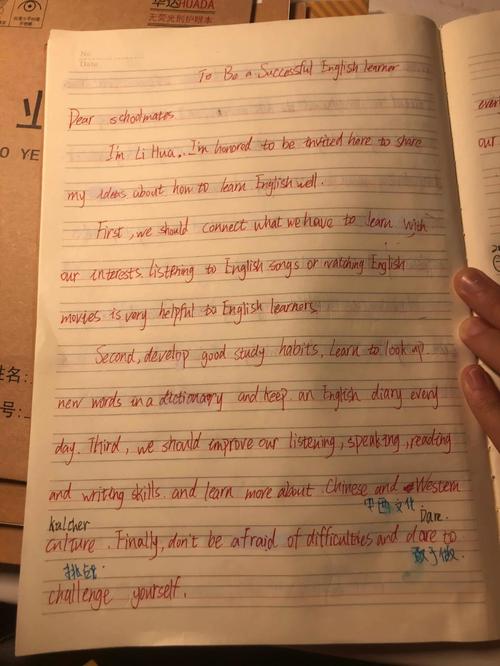 华达HUADA
无荧光剂护眼本
No
Date
业
To Be a Successful English learner
Dear schoolmates
I'm Li Hua. I'm honored to be invited here to share
my ideas about how to learn English well.
First, we should connect what we have to learn with
our interests. Listening to English songs or watching English
movies is very helpful to English learners.
Second, develop good study habits, Learn to look up
new words in a dictionary and keep an English diary every
day. Third, we should improve our listening, speaking, reading
and writing skills. and learn more about Chinese and Western
中西文化
kulcher
Dare.
culture. Finally, don't be afraid of difficulties and dare to
挑战
敢于做
challenge yourself.
our
姓名:
号: